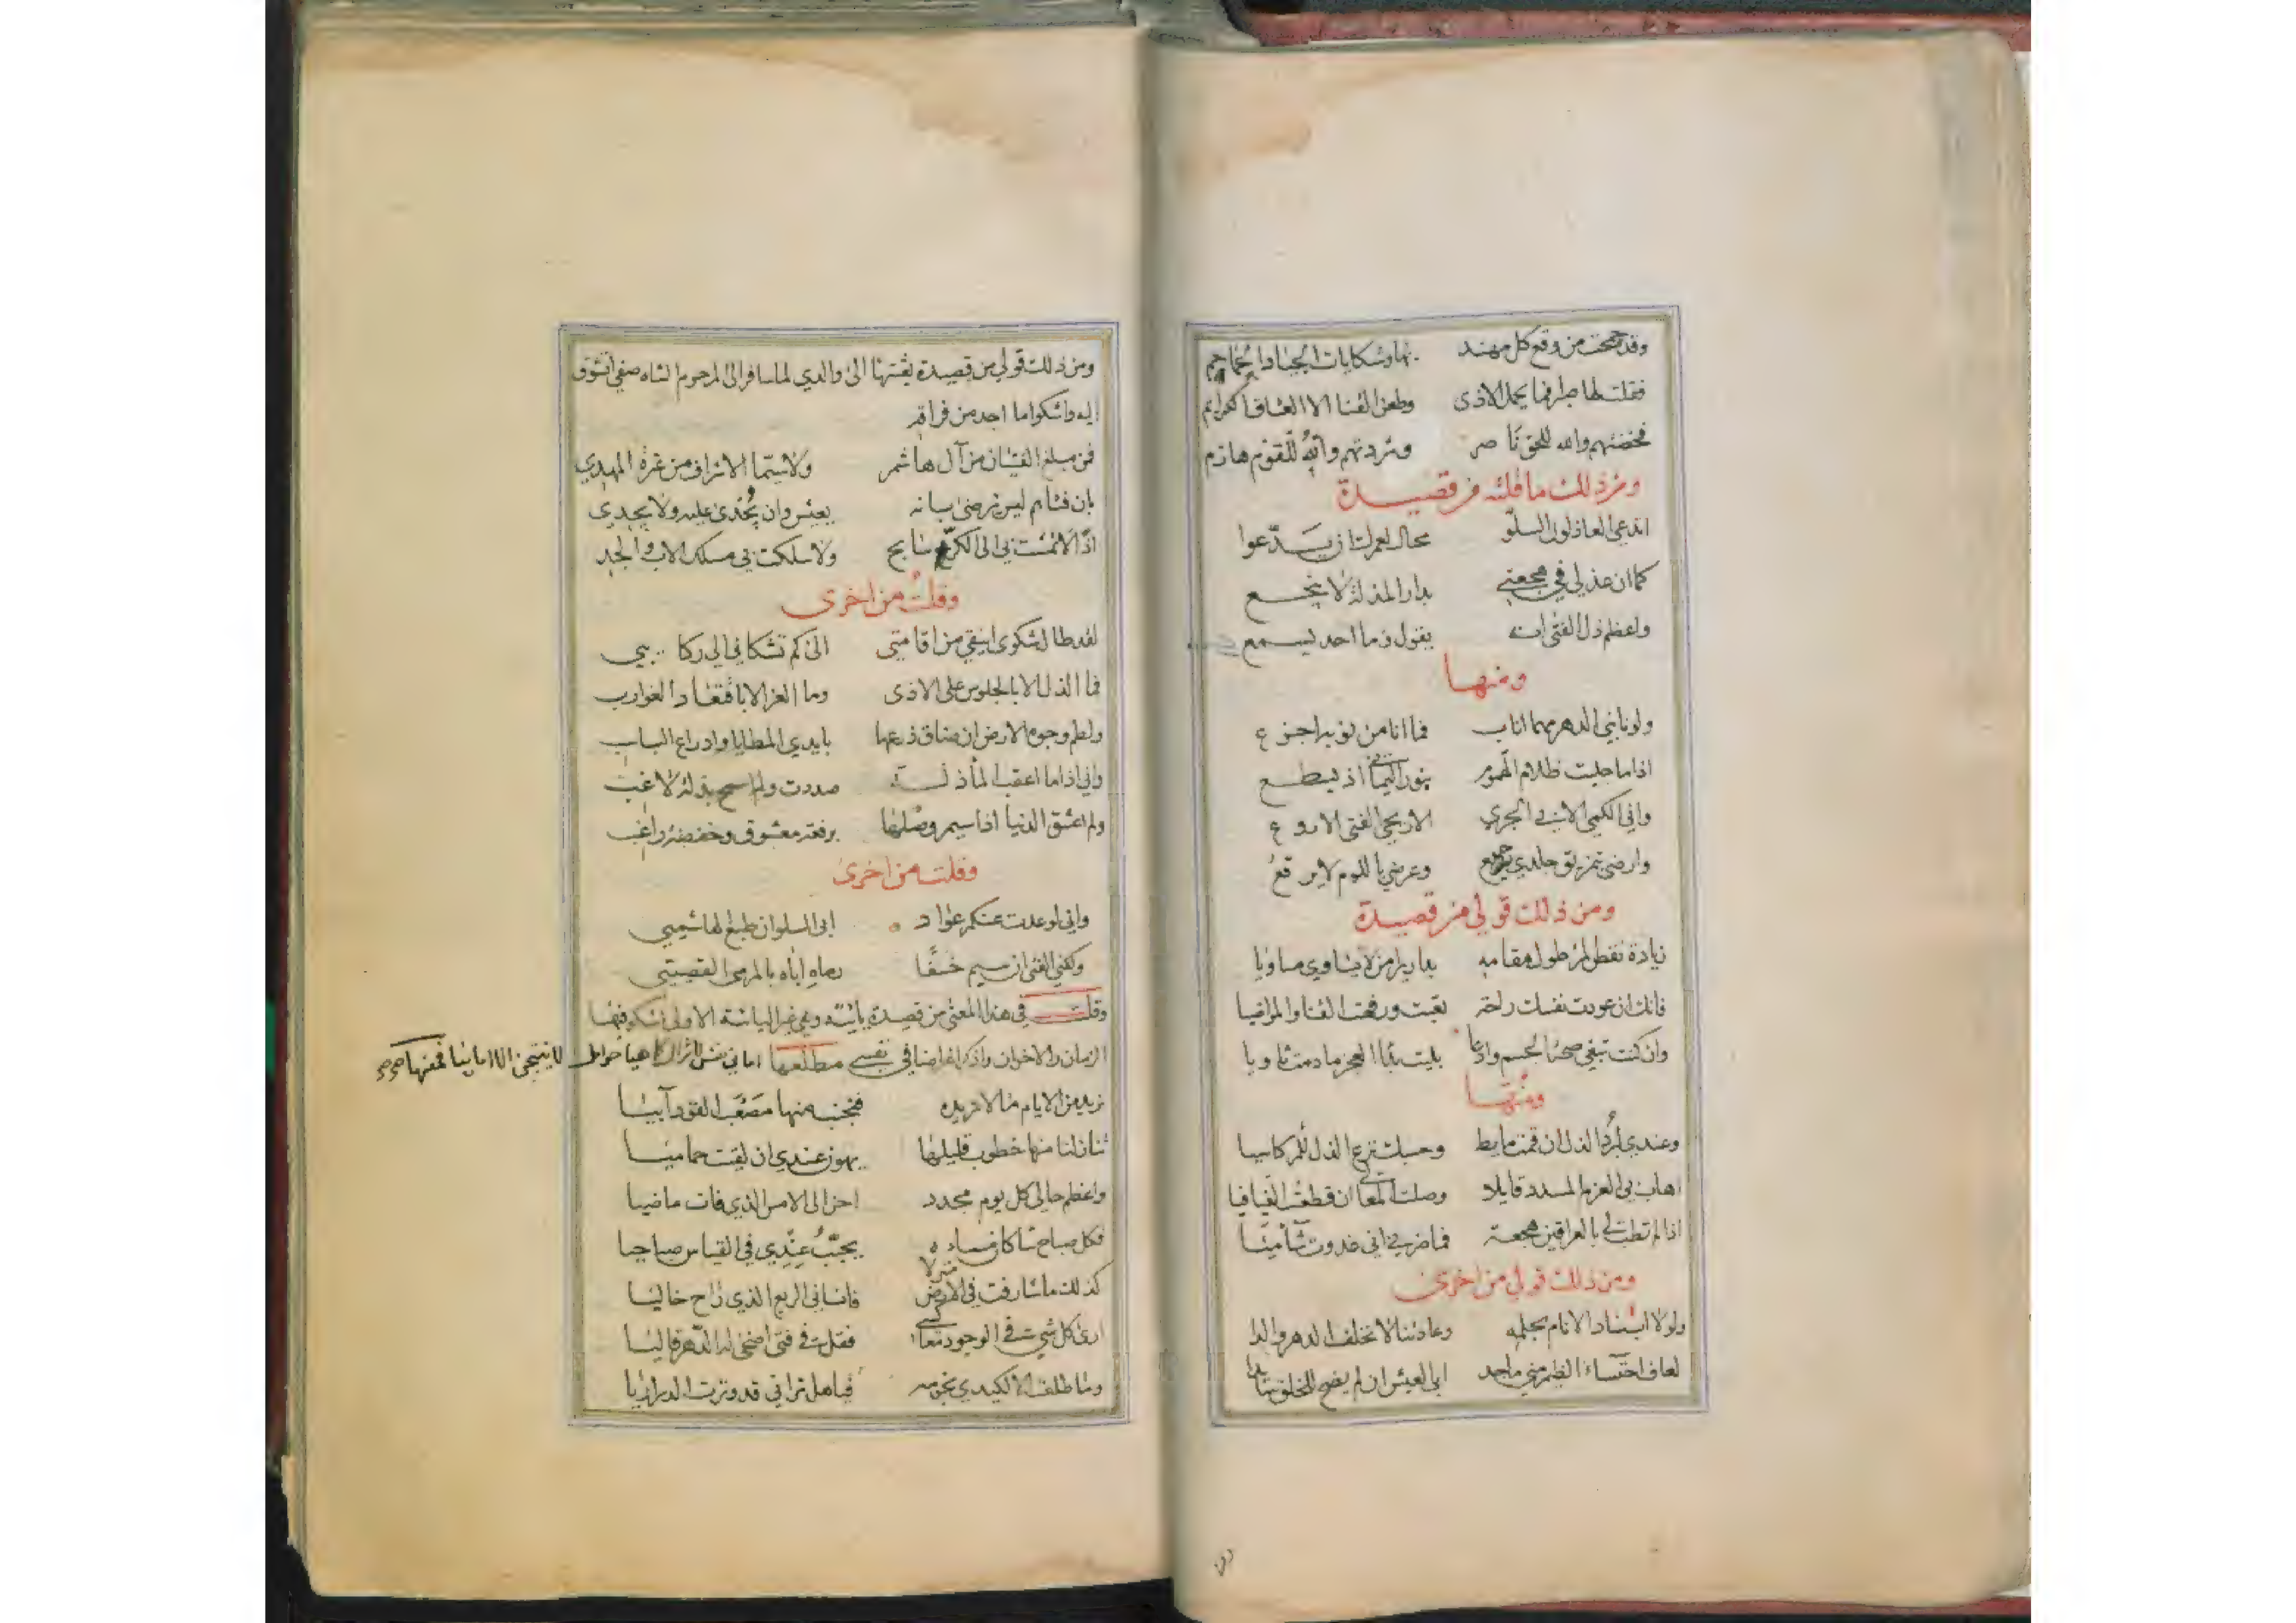 وقد ضجت من وقع كل مهند بها وشكايات الجياد الجماجم
فقلت لها صبرا فما يحمل الاذى وطعن القنا الا العتاق الكرايم
فخضتهم والله للحق نا صر وشردتهم والله للقوم هازم
ومن ذلك ما قلته من قصيدة
ايدعي العاذلون السلو محال لعمرك ان يدعوا
كما ان عذلي في بدار المذلة لا ينجع
واعظم ذل الفتى انه يقول وما احد يسمع
ومنها
ولو نابني الدهر مهما اناب فما انا من نوبه اجزع
اذا ما جليت ظلام الهموم بنور اذ يسطع
واني الكمي الابي الجري الاريحي الفتى الاروع
وارضى بتمزيق جلدي وعرضي باللوم لا يرقع
ومن ذلك قولي من قصيدة
زيادة نقص المرء طول مقامه بدار يرى من لا يساوي مساويا
فانك ان عودت نفسك راحة تعبت ورفهت القنا والمواضيا
وان كنت تبغي صحة الجسم وادعا بليت بداء العجز ما دمت ثاويا
ومنها
وعندي لرد الذل ان قمت ما بط وحسبك ترع الذل للمرء كاسيا
اهاب بي العزم المسدد قايلا وصلت المعالي ان قطعت الفيافيا
اذا لم تطب لي بالعراقين هجعة فما ضر في اني غدوت شآميا
ومن ذلك قولي من اخرى
ولولا اسناد الانام بجلهم وعادتنا لا تخلف الدهر والدا
لعاف احتساء الضيم مني ماجد ابى العيش ان لم يضح للخلق
ومن ذلك قولي من قصيدة بعثتها الى والدي لما سافر الى المرحوم الشاه صفي اتشوق
اليه واشكوا ما اجد من فراقه
فمن مبلغ الفتيان من آل هاشم ولا سيما الاشراف من غرة المهدي
بان فتاهم ليس ترضى يعيش وان يجدى عليه ولا يجدي
اذا لا نمت بي الى الكر سابح ولا سلكت بي مسلك الاب والجد
وقلت من اخرى
لقد طال شكوى اينقي من اقامتي الى كم تشكاني الي ركا يبي
فما الذل الا بالجلوس على الاذى وما العز الا باقتعاد الغوارب
ولطم وجوه الارض ان ضاق ذرعها بايدي المطايا وادراع السباسب
واني اذا ما اعقب الماء ذلة صددت ولم اسمح بذلة لاغب
ولم اعشق الدنيا اذا سيم وصلها برفعة معشوق وخفضة راغب
وقلت من اخرى
واني لو عدت عنكم عواد ابى السلوان طبع الهاشميي
ولكني الفتى ان سيم خسفا رماه اباه بالمرمى القصيي
وقلت في هذا المعنى من قصيدة يائية وهي غير اليائية الاولى اشكو فيها
الزمان والاخوان واذكر اغراضا في نفسي مطلعها اماني حوامل لا ينتجن الا امانيا فمنها
نريد من الايام ما لا تريده فنجنب منها مصعب القود آبيا
ثنان لنا منها خطوب قليلها يهون عندي ان لقيت حماميا
واعظم حالي كل يوم مجدد احن الى الامس الذي فات ماضيا
فكل صباح شاكا فمساءه يحبب عندي في القياس صباحيا
كذلك ما شارفت في الارض منزلا فانساني الربع الذي راح خاليا
ارى كل شيء في الوجود فقل في فتى اضحى له الدهر قاليا
وما طلعت الا لكيدي نجومه فيا هل تراني قد وترت الدراريا